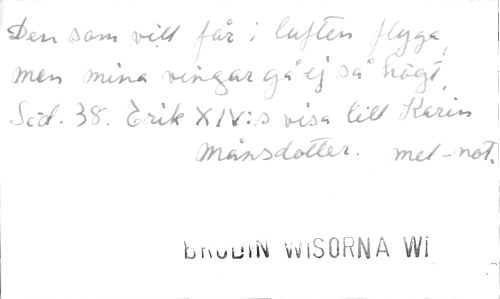 Den som vill får i luften flyga,
men mina vingar gå ej så högt,
Sid. 38. Erik XIV:s visa till Karin
Månsdotter. mel-not.
BRODIN WISORNA WI